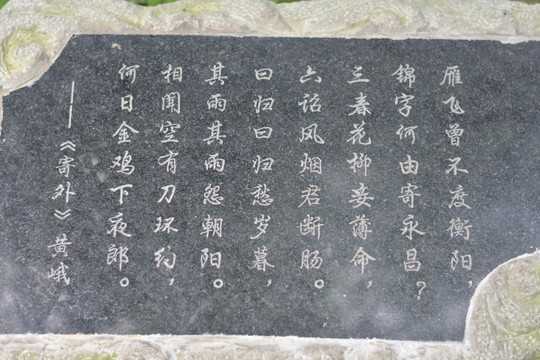 雁飞曾不度衡阳，
锦字何由寄永昌？
三春花柳妾薄命，
六诏风烟君断肠。
曰归曰归愁岁暮，
其雨其雨怨朝阳。
相闻空有刀环约，
何日金鸡下夜郎。
——《寄外》黄峨